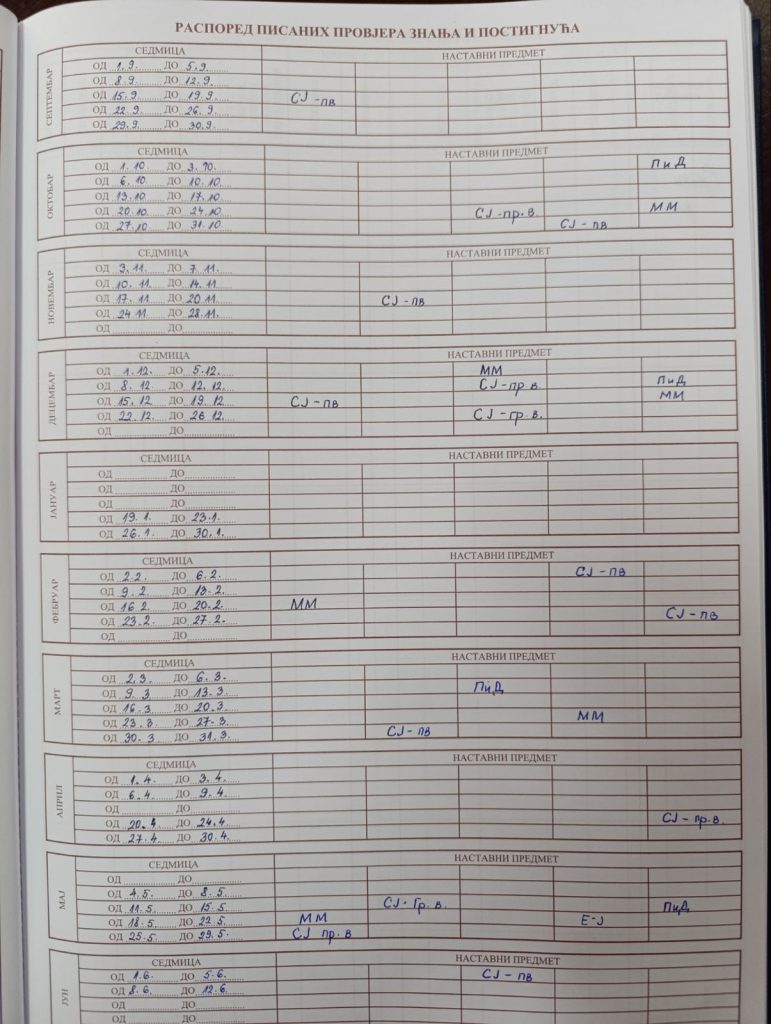 РАСПОРЕД ПИСАНИХ ПРОВЈЕРА ЗНАЊА И ПОСТИГНУЋА
СЕПТЕМБАР
СЕДМИЦА НАСТАВНИ ПРЕДМЕТ
ОД 1.9. ДО 5.9.
ОД 8.9 ДО 12.9.
ОД 15.9 ДО 19.9. СЈ-пв
ОД 22.9 ДО 26.9.
ОД 29.9. ДО 30.9.
ОКТОБАР
СЕДМИЦА НАСТАВНИ ПРЕДМЕТ
ОД 1.10. ДО 3.10. ПиД
ОД 6.10 ДО 10.10.
ОД 13.10 ДО 17.10
ОД 20.10 ДО 24.10 СЈ-пр.в. ММ
ОД 27.10 ДО 31.10 СЈ-пв
НОВЕМБАР
СЕДМИЦА НАСТАВНИ ПРЕДМЕТ
ОД 3.11. ДО 7.11.
ОД 10.11. ДО 14.11
ОД 17.11 ДО 20 11 СЈ-пв
ОД 24 11 ДО 28.11.
ОД ДО
ДЕЦЕМБАР
СЕДМИЦА НАСТАВНИ ПРЕДМЕТ
ОД 1.12. ДО 5.12. ММ
ОД 8.12 ДО 12.12. СЈ-пр.в. ПиД
ОД 15.12 ДО 19.12 СЈ-пв ММ
ОД 22.12. ДО 26 12 СЈ-гр.в.
ОД ДО
ЈАНУАР
СЕДМИЦА НАСТАВНИ ПРЕДМЕТ
ОД ДО
ОД ДО
ОД ДО
ОД 19.1. ДО 23.1.
ОД 26.1. ДО 30.1.
ФЕБРУАР
СЕДМИЦА НАСТАВНИ ПРЕДМЕТ
ОД 2.2. ДО 6.2. СЈ-пв
ОД 9.2. ДО 13.2
ОД 16.2. ДО 20.2. ММ
ОД 23.2. ДО 27.2. СЈ-пв
ОД ДО
МАРТ
СЕДМИЦА НАСТАВНИ ПРЕДМЕТ
ОД 2.3. ДО 6.3.
ОД 9.3 ДО 13.3. ПиД
ОД 16.3 ДО 20.3.
ОД 23.3. ДО 27.3 ММ
ОД 30.3 ДО 31.3. СЈ-пв
АПРИЛ
СЕДМИЦА НАСТАВНИ ПРЕДМЕТ
ОД 1.4. ДО 3.4.
ОД 6.4. ДО 9.4
ОД ДО
ОД 20.4 ДО 24.4 СЈ-пр.в.
ОД 27.4 ДО 30.4.
МАЈ
СЕДМИЦА НАСТАВНИ ПРЕДМЕТ
ОД ДО
ОД 4.5. ДО 8.5.
ОД 11.5. ДО 15.5 СЈ-Гр.в. ПиД
ОД 18.5 ДО 22.5 ММ Е-Ј
ОД 25.5. ДО 29.5. СЈ пр.в
ЈУН
СЕДМИЦА НАСТАВНИ ПРЕДМЕТ
ОД 1.6. ДО 5.6. СЈ-пв
ОД 8.6. ДО 12.6.
ОД ДО
ОД ДО